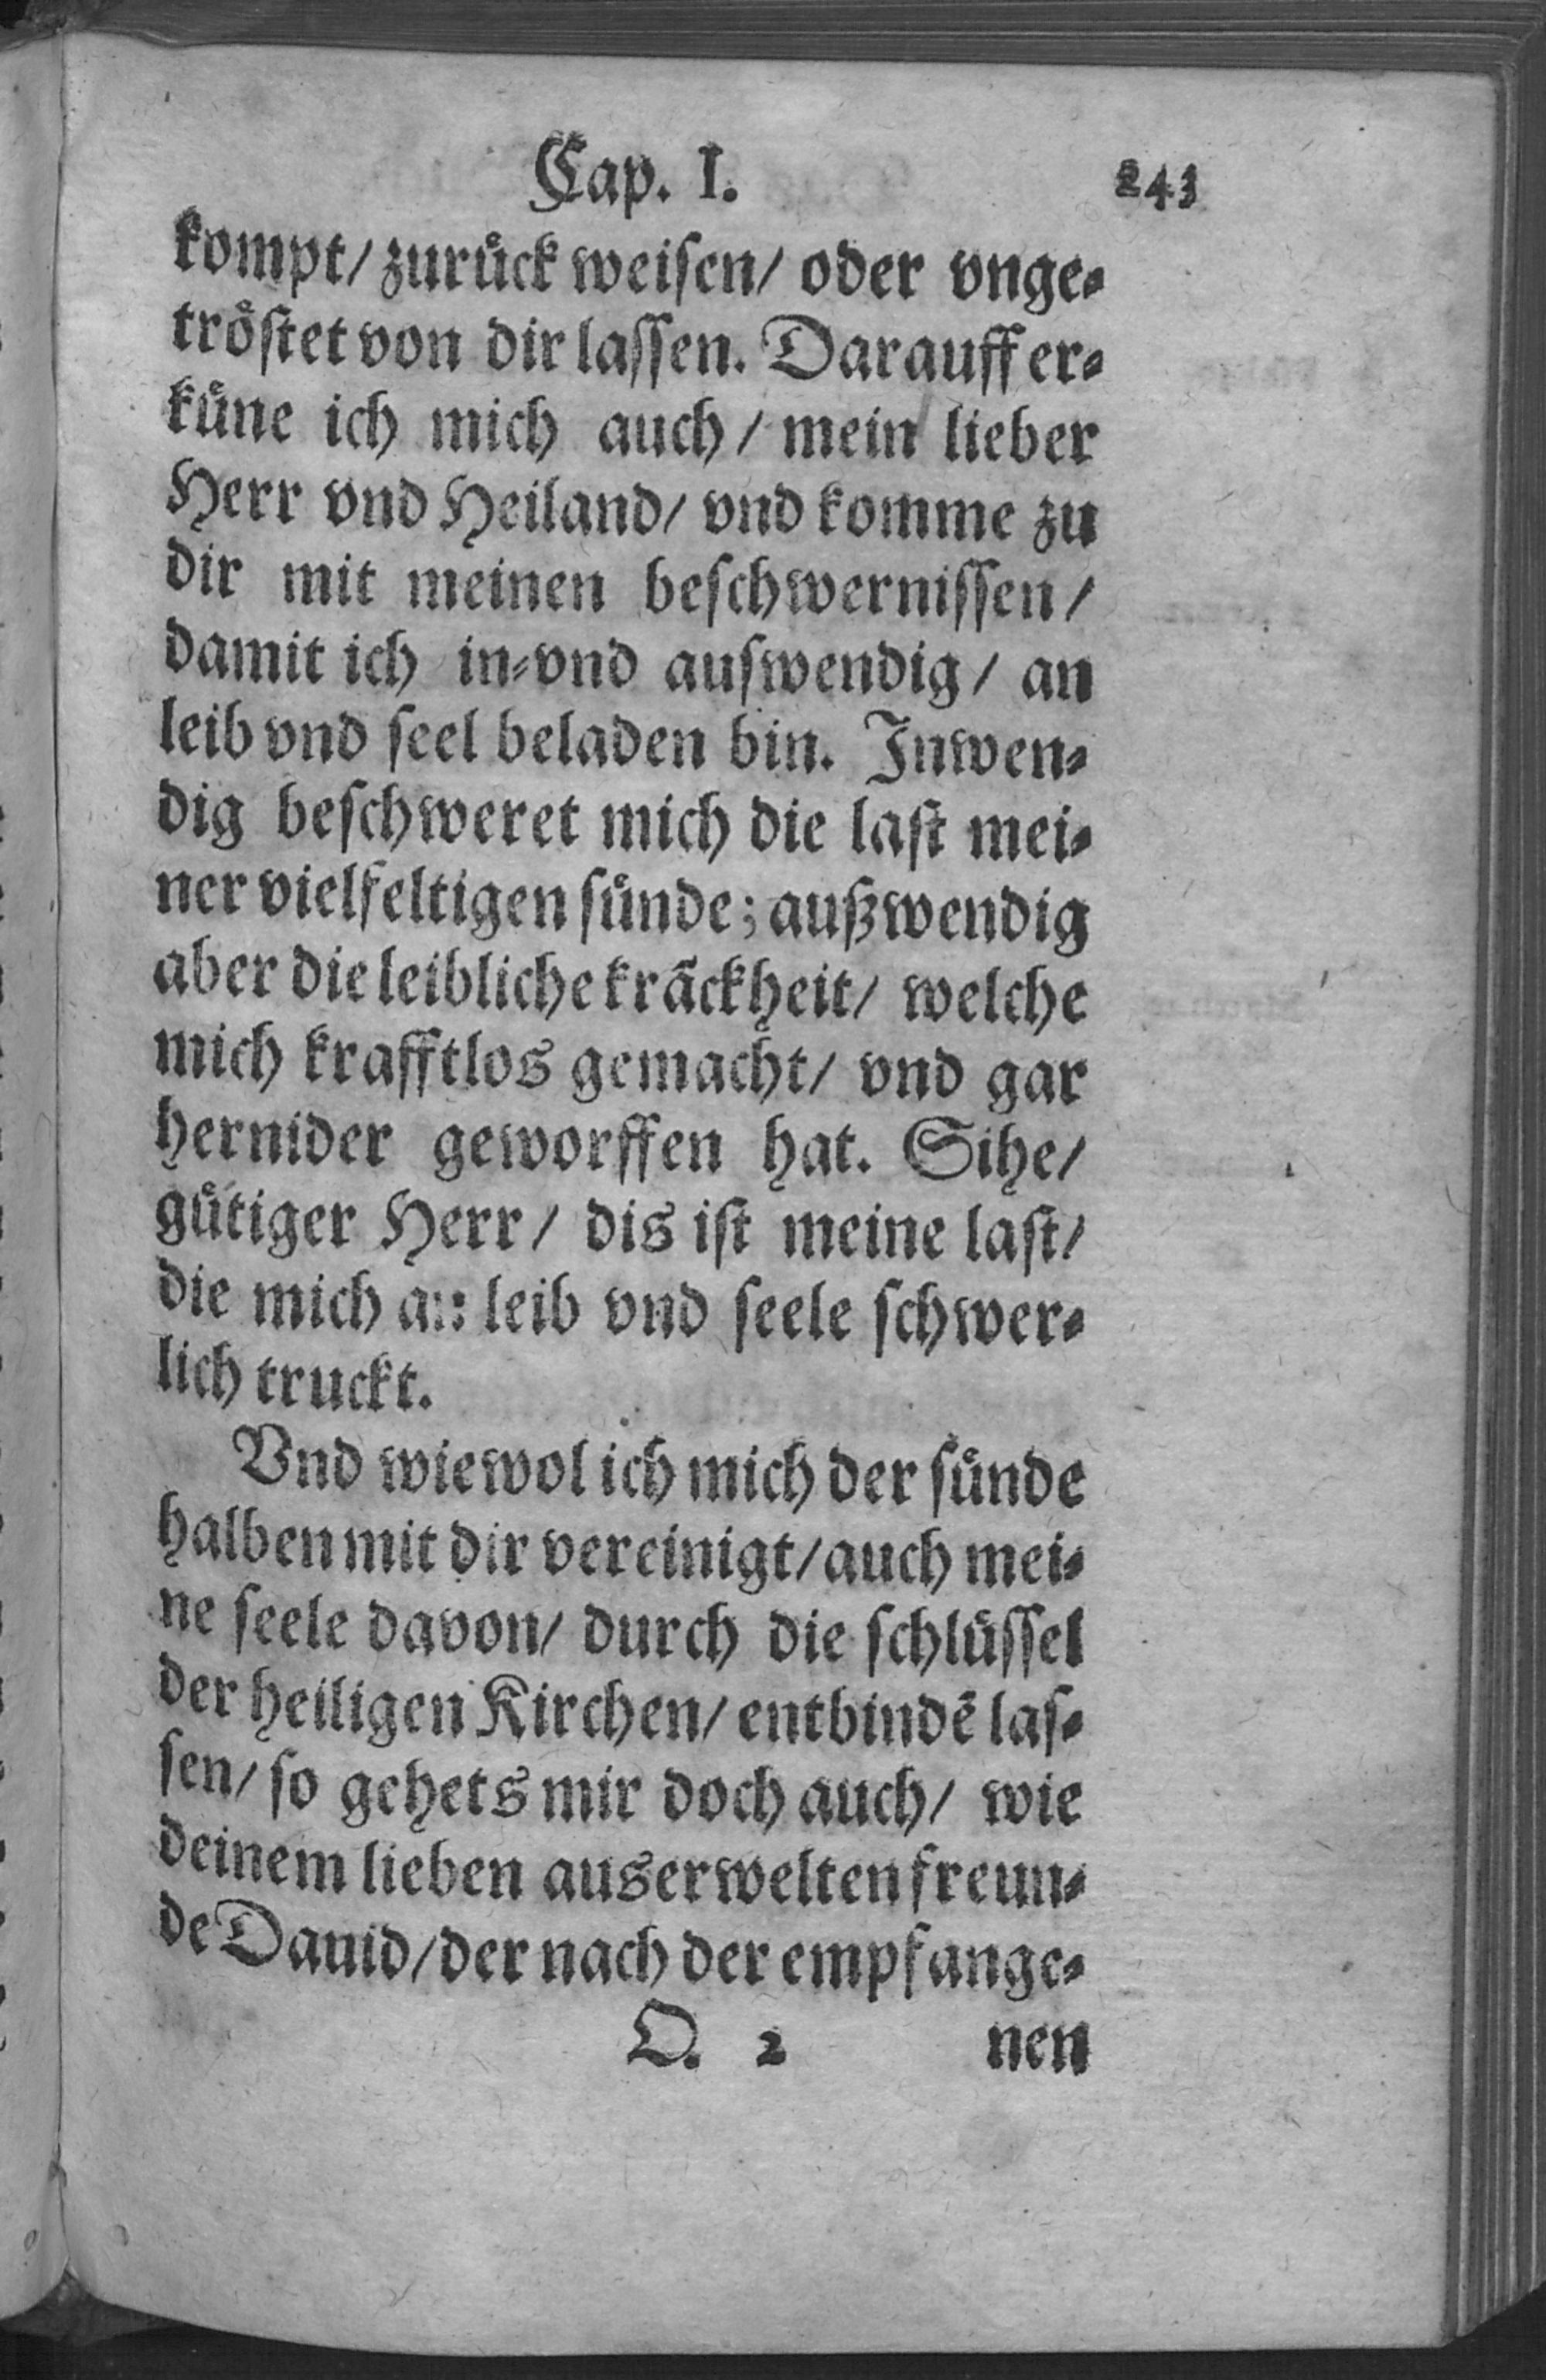 Cap. I. 243
kompt/ zuruͤck weisen/ oder vnge⸗
troͤstet von dir lassen. Darauff er⸗
kuͤne ich mich auch/ mein lieber
Herr vnd Heiland/ vnd komme zu
dir mit meinen beschwernissen/
damit ich in⸗vnd auswendig/ an
leib vnd seel beladen bin. Inwen⸗
dig beschweret mich die last mei⸗
ner vielfeltigen suͤnde; außwendig
aber die leibliche krãckheit/ welche
mich krafftlos gemacht/ vnd gar
hernider geworffen hat. Sihe/
guͤtiger Herr/ dis ist meine last/
die mich an leib vnd seele schwer⸗
lich truckt.
Vnd wiewol ich mich der suͤnde
halben mit dir vereinigt/ auch mei⸗
ne seele davon/ durch die schluͤssel
der heiligen Kirchen/ entbindẽ las⸗
sen/ so gehets mir doch auch/ wie
deinem lieben auserwelten freun⸗
de Dauid/ der nach der empfange⸗
O. 2 nen